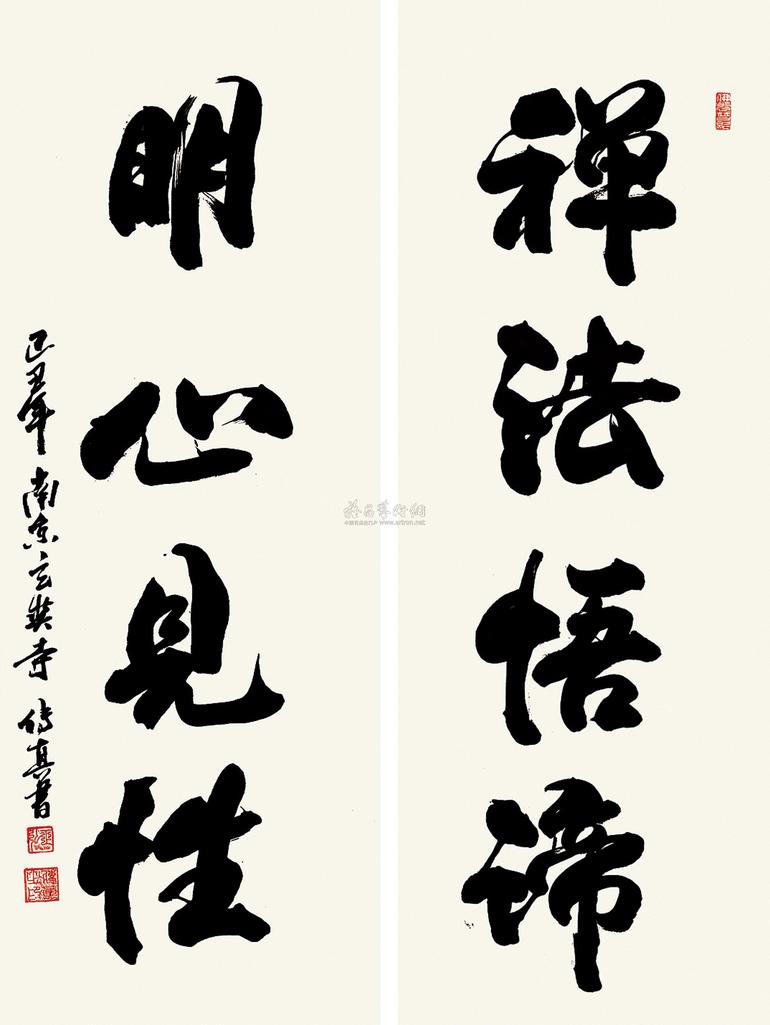 禅法悟谛
明心见性
己丑年 南京玄奘寺 传真书
www.artron.net